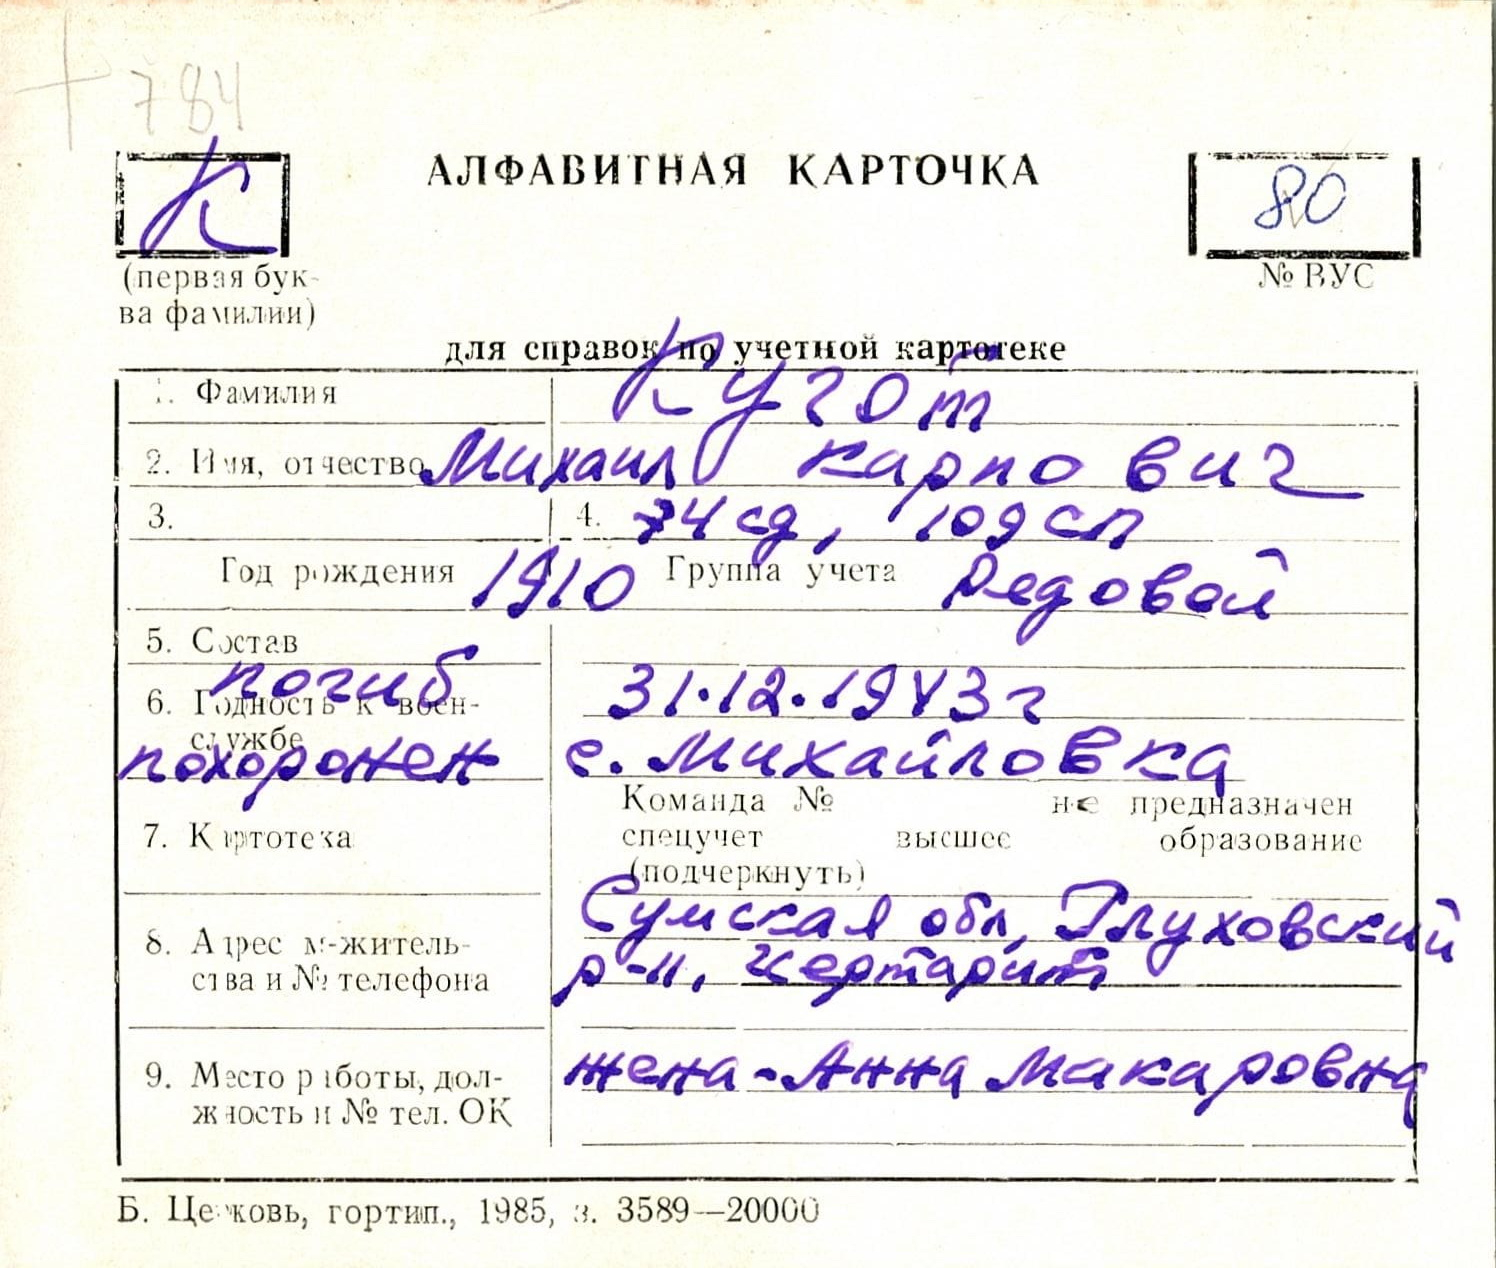 + 784
К
АЛФАВИТНАЯ КАРТОЧКА
80
(первая бук-
ва фамилии)
№ ВУС
для справок по учетной картотеке
1. Фамилия Кугот
2. Имя, отчество Михаил Карпович
3. 4. 74 сд, 109 сп
Год рождения 1910 Группа учета Редовой
5. Состав
погиб 31.12.1943 г
6. Годность к воен-
службе
похоронен с. Михайловка
Команда № не предназначен
7. Картотека спецучет высшее образование
(подчеркнуть)
Сумская обл, Глуховский
8. Адрес м-житель-
ства и № телефона
р-н,
9. Место работы, дол-
жность и № тел. ОК
жена - Анна Макаровна
Б. Церковь, гортип., 1985, з. 3589—20000